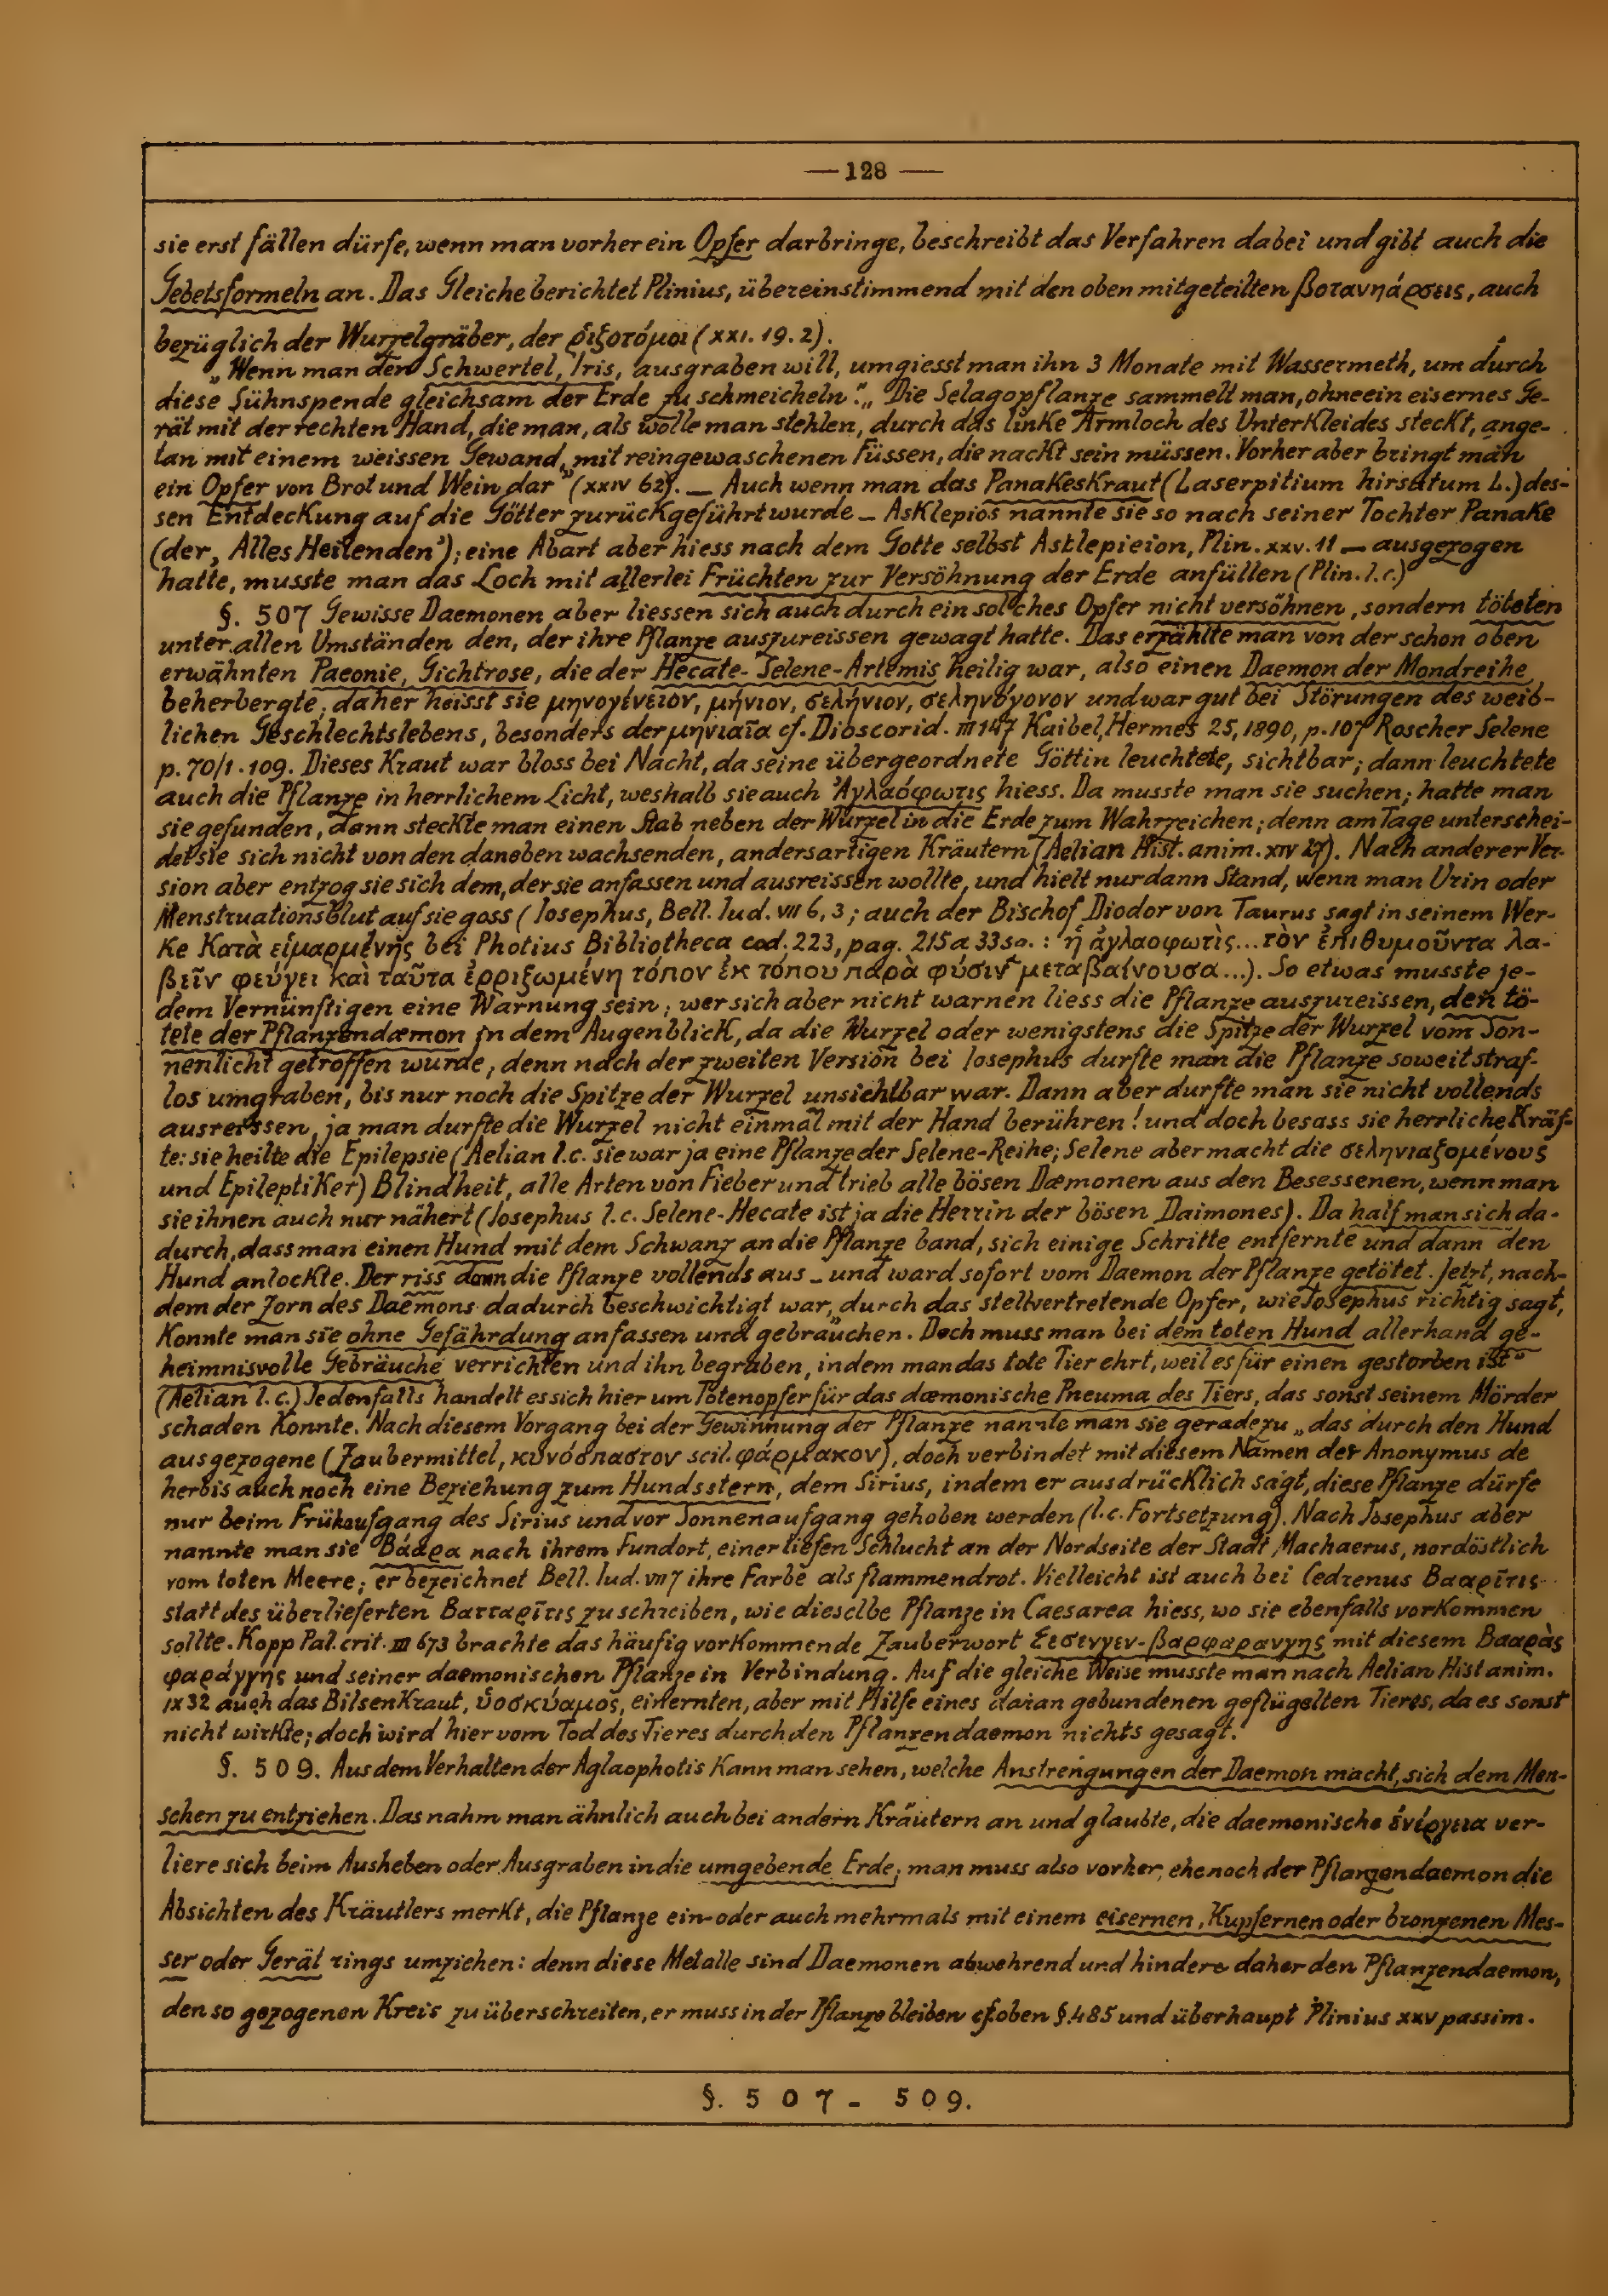 — 128 —
sie erst fällen dürfe, wenn man vorher ein Opfer darbringe, beschreibt das Verfahren dabei und gibt auch die
Gebetsformeln an. Das Gleiche berichtet Plinius, übereinstimmend mit den oben mitgeteilten βοτανηάρσεις, auch
bezüglich der Wurzelgräber, der ῥιζοτόμοι (XXI. 19. 2).
„Wenn man den Schwertel, Iris, ausgraben will, umgiesst man ihn 3 Monate mit Wassermeth, um durch
diese Sühnspende gleichsam der Erde zu schmeicheln". „Die Selagopflanze sammelt man, ohne ein eisernes Ge-
rät mit der rechten Hand, die man, als wolle man stehlen, durch das linke Armloch des Unterkleides steckt, ange-
tan mit einem weissen Gewand, mit reingewaschenen Füssen, die nackt sein müssen. Vorher aber bringt man
ein Opfer von Brot und Wein dar" (XXIV 62). — Auch wenn man das Panakeskraut (Laserpitium hirsutum L.) des-
sen Entdeckung auf die Götter zurückgeführt wurde – Asklepios nannte sie so nach seiner Tochter Panake
(der ‚Alles Heilenden'); eine Abart aber hiess nach dem Gotte selbst Asklepieion, Plin. XXV. 11 — ausgezogen
hatte, musste man das Loch mit allerlei Früchten zur Versöhnung der Erde anfüllen (Plin. l. c.)
§. 507 Gewisse Daemonen aber liessen sich auch durch ein solches Opfer nicht versöhnen, sondern töteten
unter allen Umständen den, der ihre Pflanze auszureissen gewagt hatte. Das erzählte man von der schon oben
erwähnten Paeonie, Gichtrose, die der Hecate-Selene-Artemis heilig war, also einen Daemon der Mondreihe
beherbergte; daher heisst sie μηνογένειον, μήνιον, σελήνιον, σεληνόγονον und war gut bei Störungen des weib-
lichen Geschlechtslebens, besonders der μηνιαῖα cf. Dioscorid. III 147 Kaibel, Hermes 25, 1890, p. 107 Roscher Selene
p. 70/1. 109. Dieses Kraut war bloss bei Nacht, da seine übergeordnete Göttin leuchtete, sichtbar; dann leuchtete
auch die Pflanze in herrlichem Licht, weshalb sie auch Ἀγλαόφωτις hiess. Da musste man sie suchen; hatte man
sie gefunden, dann steckte man einen Stab neben der Wurzel in die Erde zum Wahrzeichen; denn am Tage unterschei-
det sie sich nicht von den daneben wachsenden, andersartigen Kräutern (Aelian Hist. anim. XIV 27). Nach anderer Ver-
sion aber entzog sie sich dem, der sie anfassen und ausreissen wollte, und hielt nur dann Stand, wenn man Urin oder
Menstruationsblut auf sie goss (Iosephus, Bell. Iud. VII 6, 3; auch der Bischof Diodor von Taurus sagt in seinem Wer-
ke Κατὰ εἱμαρμένης bei Photius Bibliotheca cod. 223, pag. 215a 33sq.: ἡ ἀγλαοφωτὶς... τὸν ἐπιθυμοῦντα λα-
βεῖν φεύγει καὶ ταῦτα ἐρριζωμένη τόπον ἐκ τόπου παρὰ φύσιν μεταβαίνουσα...). So etwas musste je-
dem Vernünftigen eine Warnung sein; wer sich aber nicht warnen liess die Pflanze auszureissen, den tö-
tete der Pflanzendæmon in dem Augenblick, da die Wurzel oder wenigstens die Spitze der Wurzel vom Son-
nenlicht getroffen wurde, denn nach der zweiten Version bei Iosephus durfte man die Pflanze soweit straf-
los umgraben, bis nur noch die Spitze der Wurzel unsichtbar war. Dann aber durfte man sie nicht vollends
ausreissen, ja man durfte die Wurzel nicht einmal mit der Hand berühren! und doch besass sie herrliche Kräf-
te: sie heilte die Epilepsie (Aelian l. c. sie war ja eine Pflanze der Selene-Reihe; Selene aber macht die σεληνιαζομένους
und Epileptiker) Blindheit, alle Arten von Fieber und trieb alle bösen Dæmonen aus den Besessenen, wenn man
sie ihnen auch nur nähert (Iosephus l. c. Selene-Hecate ist ja die Herrin der bösen Daimones). Da half man sich da-
durch, dass man einen Hund mit dem Schwanz an die Pflanze band, sich einige Schritte entfernte und dann den
Hund anlockte. Der riss dann die Pflanze vollends aus – und ward sofort vom Daemon der Pflanze getötet. Jetzt, nach-
dem der Zorn des Daemons dadurch beschwichtigt war, „durch das stellvertretende Opfer, wie Iosephus richtig sagt,
konnte man sie ohne Gefährdung anfassen und gebrauchen. Doch muss man bei dem toten Hund allerhand ge-
heimnisvolle Gebräuche verrichten und ihn begraben, indem man das tote Tier ehrt, weil es für einen gestorben ist"
(Aelian l. c.) Jedenfalls handelt es sich hier um Totenopfer für das dæmonische Pneuma des Tiers, das sonst seinem Mörder
schaden konnte. Nach diesem Vorgang bei der Gewinnung der Pflanze nannte man sie geradezu „das durch den Hund
ausgezogene (Zaubermittel, κυνόσπαστον scil. φάρμακον), doch verbindet mit diesem Namen der Anonymus de
herbis auch noch eine Beziehung zum Hundsstern, dem Sirius, indem er ausdrücklich sagt, diese Pflanze dürfe
nur beim Frühaufgang des Sirius und vor Sonnenaufgang gehoben werden (l. c. Fortsetzung). Nach Josephus aber
nannte man sie Βάαρα nach ihrem Fundort, einer tiefen Schlucht an der Nordseite der Stadt Machaerus, nordöstlich
vom toten Meere; er bezeichnet Bell. Iud. VII 7 ihre Farbe als flammendrot. Vielleicht ist auch bei Cedrenus Βααρῖτις
statt des überlieferten Βατταρῖτις zu schreiben, wie dieselbe Pflanze in Caesarea hiess, wo sie ebenfalls vorkommen
sollte. Kopp Pal. crit. III 673 brachte das häufig vorkommende Zauberwort ξεσενγεν-βαρφαρανγης mit diesem Βααρὰς
φαράγγης und seiner daemonischen Pflanze in Verbindung. Auf die gleiche Weise musste man nach Aelian Hist anim.
IX 32 auch das Bilsenkraut, ὑοσκύαμος, einernten, aber mit Hilfe eines daran gebundenen geflügelten Tieres, da es sonst
nicht wirkte; doch wird hier vom Tod des Tieres durch den Pflanzendaemon nichts gesagt.
§. 509. Aus dem Verhalten der Aglaophotis kann man sehen, welche Anstrengungen der Daemon macht, sich dem Men-
schen zu entziehen. Das nahm man ähnlich auch bei andern Kräutern an und glaubte, die daemonische ἐνέργεια ver-
liere sich beim Ausheben oder Ausgraben in die umgebende Erde; man muss also vorher, ehe noch der Pflanzendaemon die
Absichten des Kräutlers merkt, die Pflanze ein- oder auch mehrmals mit einem eisernen, kupfernen oder bronzenen Mes-
ser oder Gerät rings umziehen: denn diese Metalle sind Daemonen abwehrend und hindern daher den Pflanzendaemon,
den so gezogenen Kreis zu überschreiten, er muss in der Pflanze bleiben cf. oben §. 485 und überhaupt Plinius XXV passim.
§. 507 - 509.